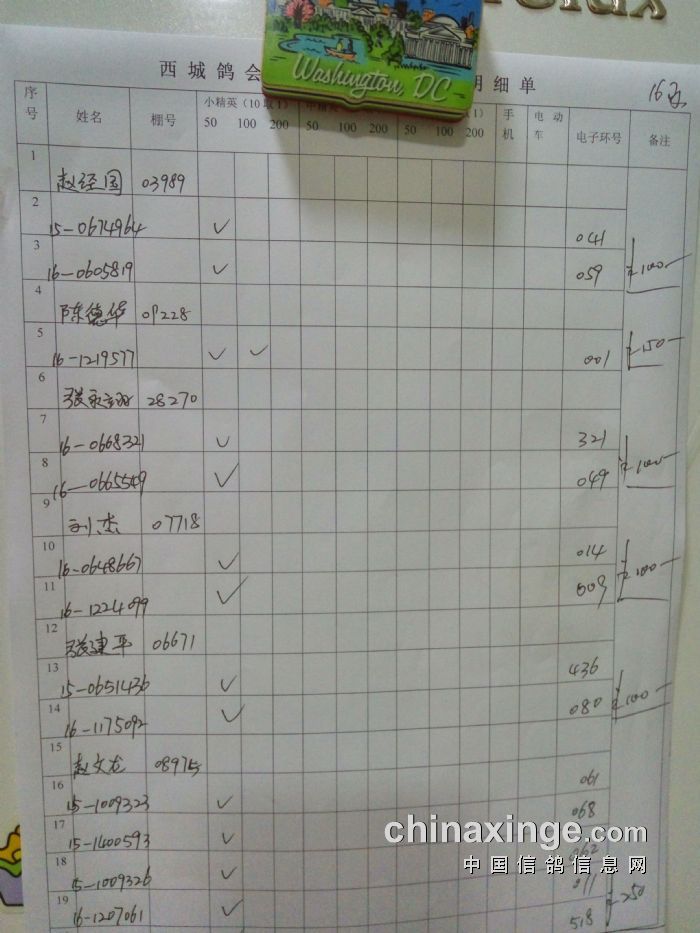 relax
Washington, DC
西城鸽会 明细单
16羽
序号 姓名 棚号 小精英(10取1) 50 100 200 100 200 100 200 手机 电动车 电子环号 备注
1 赵经国 03989
2 15-0674964 ✓ 041
3 16-0605819 ✓ 059 100
4 陈德华 09228
5 16-1219577 ✓ ✓ 001 150
6 28270
7 16-0668321 ✓ 321
8 16-0665549 ✓ 049 100
9 刘杰 07718
10 16-0648667 ✓ 014
11 16-1224099 ✓ 009 100
12 张建平 06671
13 15-0651436 ✓ 436
14 16-1175092 ✓ 080 100
15 赵文龙 08975
16 15-1009323 ✓ 061
17 15-1400593 ✓ 068
18 15-1009326 ✓ 062
19 16-1207061 ✓ 011
518
250
chinaxinge.com
中国信鸽信息网